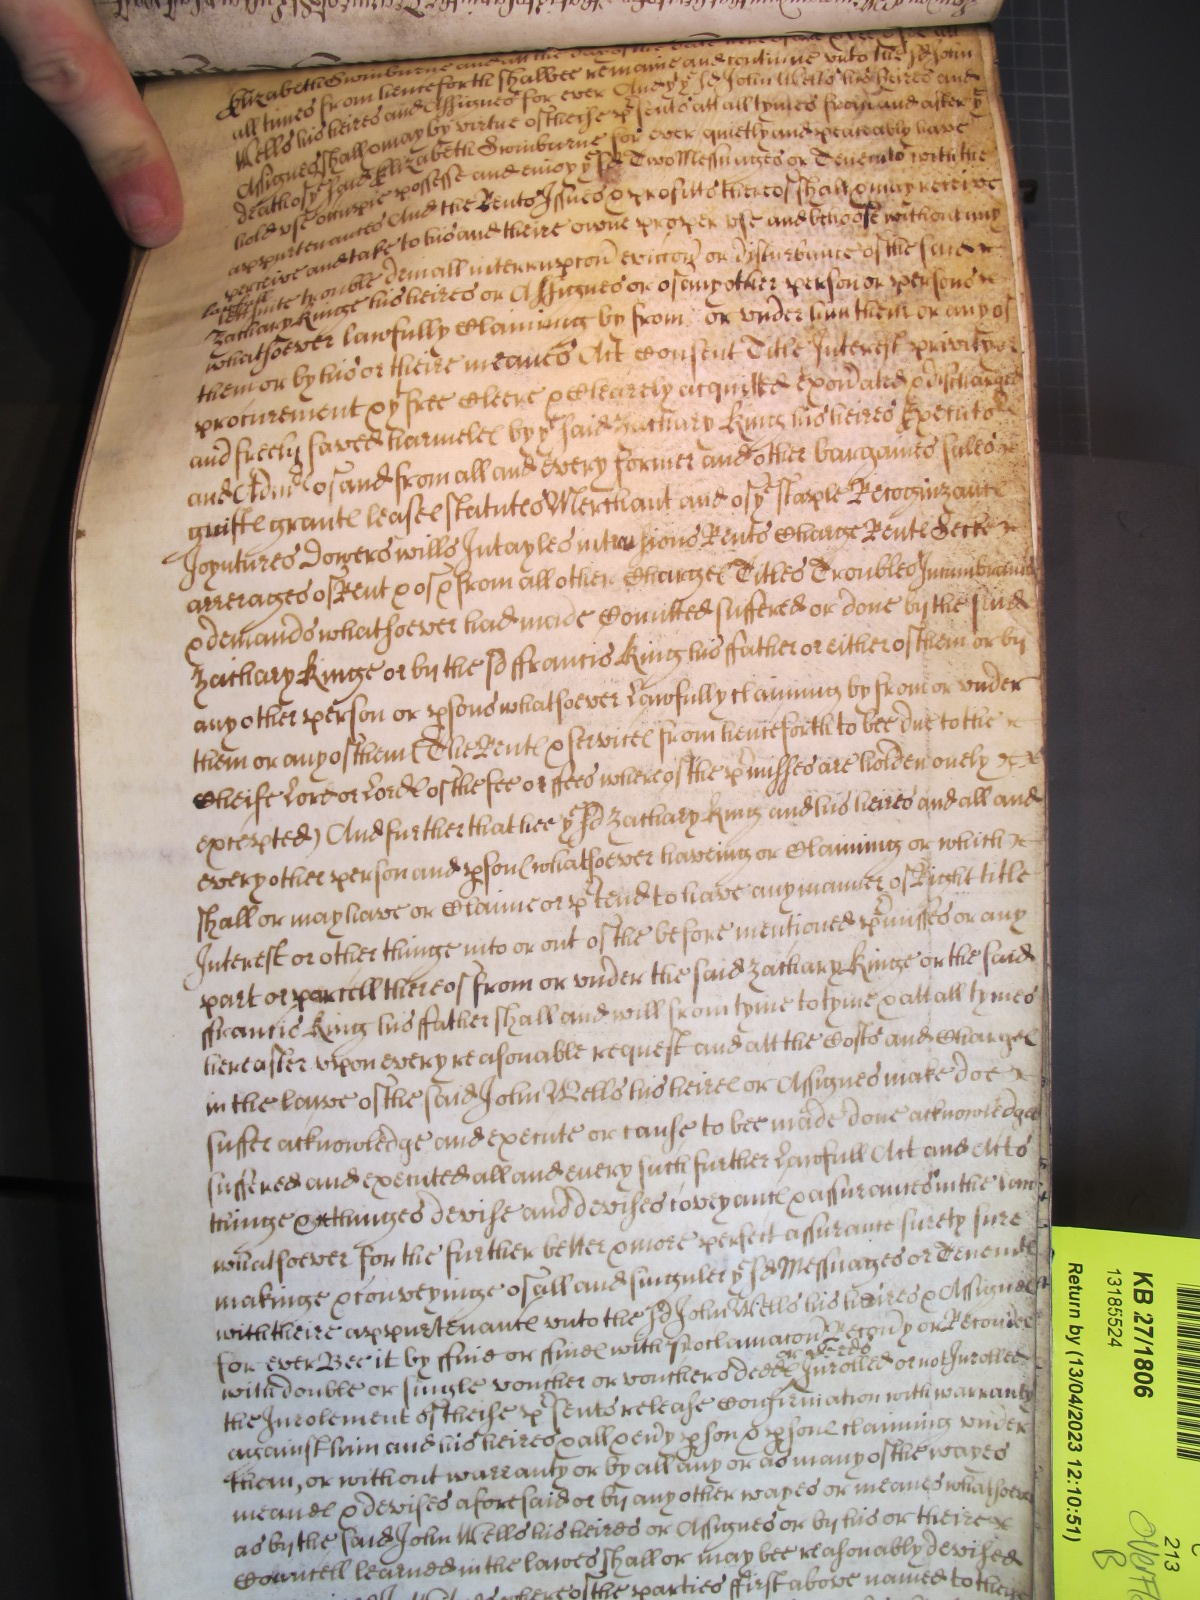 Elizabeth Swinburne and all the
all times from henceforth shall bee remaine and continue unto the sd John
Wells his heires and Assignes for ever And yt ye sd John Wells his heires and
Assignes shall & may by virtue of theise psents att all tymes from and after ye
death of ye said Elizabeth Swinburne for ever quietly and peaceably have
hold use occupie possesse and enioy ye sd Two Messuages or Tenemts with the
appurtenances And the Rents Issues & profitts thereof shall & may receive
perceive and take to his and theire owne proper use and behoofe without any
lett suite trouble deniall interrupcon eviccon or disturbance of the said
Zachary Kinge his heires or Assignes or of any other person or persons
whatsoever lawfully Claiming by from or under him them or any of
them or by his or theire meanes Act Consent Title Interest privity or
procurement & yt free Cleere & Clearely acquitted exonated & discharged
and freely saved harmeles by ye said Zachary King his heires Executors
and Admrs of and from all and every former and other bargaines sales
guiftes grantes leases Statutes Merchant and of ye Staple Recognizances
Joyntures Dowers wills Intayles intrusions Rents Charge Rentes Secke
arrerages of Rent & of & from all other Charges Titles Troubles Incumbrances
& demands whatsoever had made Comitted suffered or done by the said
Zachary Kinge or by the sd ffrancis King his ffather or either of them or by
any other person or psons whatsoever Lawfully claiming by from or under
them or any of them (The Rentes & services from henceforth to bee due to the
Cheife Lord or Lordes of the fee or fees whereof the pmisses are holden onely
excepted) And further that hee ye sd Zachary King and his heires and all and
every other person and psons whatsoever haveing or Claiming or which
shall or may have or Claime or ptend to have any manner of Right title
Interest or other thinge into or out of the before mentioned pmisses or any
part or parcell thereof from or under the said Zachary Kinge or the said
ffrancis King his ffather shall and will from tyme to tyme & att all tymes
hereafter upon every reasonable request and att the Costs and Charges
in the Lawe of the said John Wells his heires or Assignes make doe
suffer acknowledge and execute or cause to bee made done acknowledged
suffered and executed all and every such further Lawfull Act and Acts
thinge & thinges devise and devises coveyances & assurances in the Law
whatsoever for the further better & more perfect assurance surety sure
makinge & conveyinge of all and singuler ye sd Messuages or Tenemts
with theire appurtenances unto the sd John Wells his heires & Assignes
for ever Bee it by ffine or ffines with Proclamacon Recovy or Recoveries
with double or single voucher or vouchers deed or deeds Inrolled or not Inrolled
the Inrolement of theise psents release Confirmation with warranty
against him and his heires & all & evy pson & psons claiming under
them, or without warranty or by all any or as many of the wayes
meanes & devises aforesaid or by any other wayes or meanes whatsoever
as by the said John Wells his heires or Assignes or by his or theire
Councell learned in the lawes shall or may bee reasonably devised
whereof the parties first above named to theise
KB 27/1806
13185524
Return by (13/04/2023 12:10:51)
213